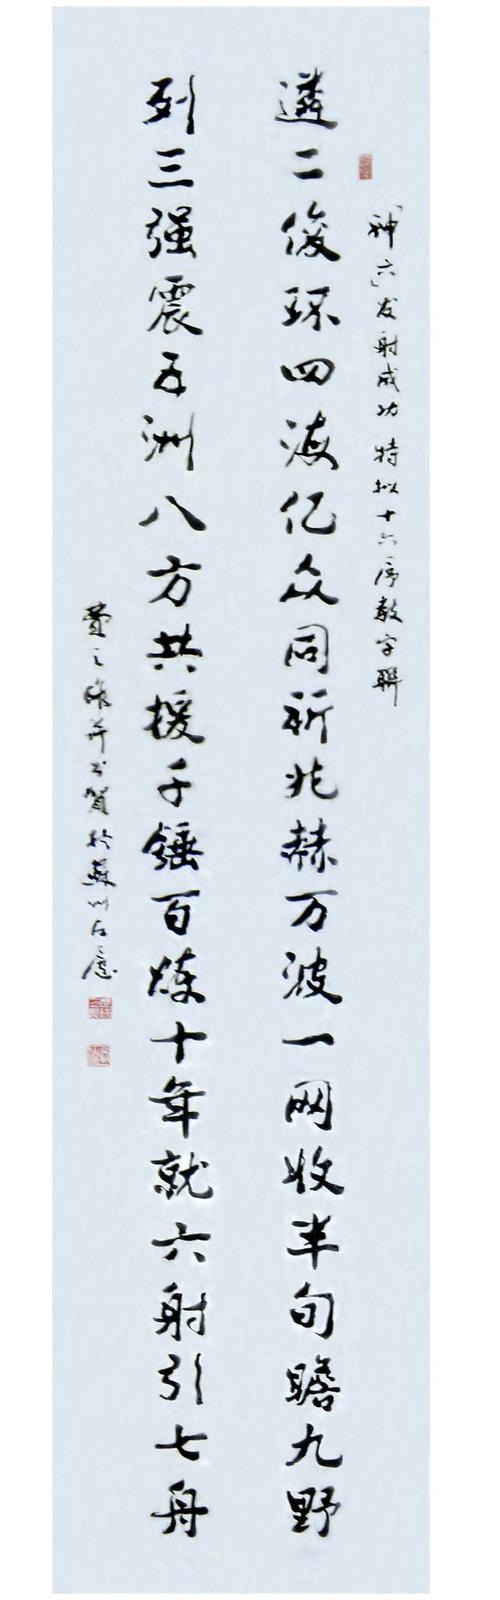 「神六」发射成功特拟十六序数字聯
遴二俊环四海亿众同祈兆赫万波一网收半旬瞻九野
列三强震五洲八方共援千锤百炼十年就六射引七舟
費之雄并书賀於蘇州